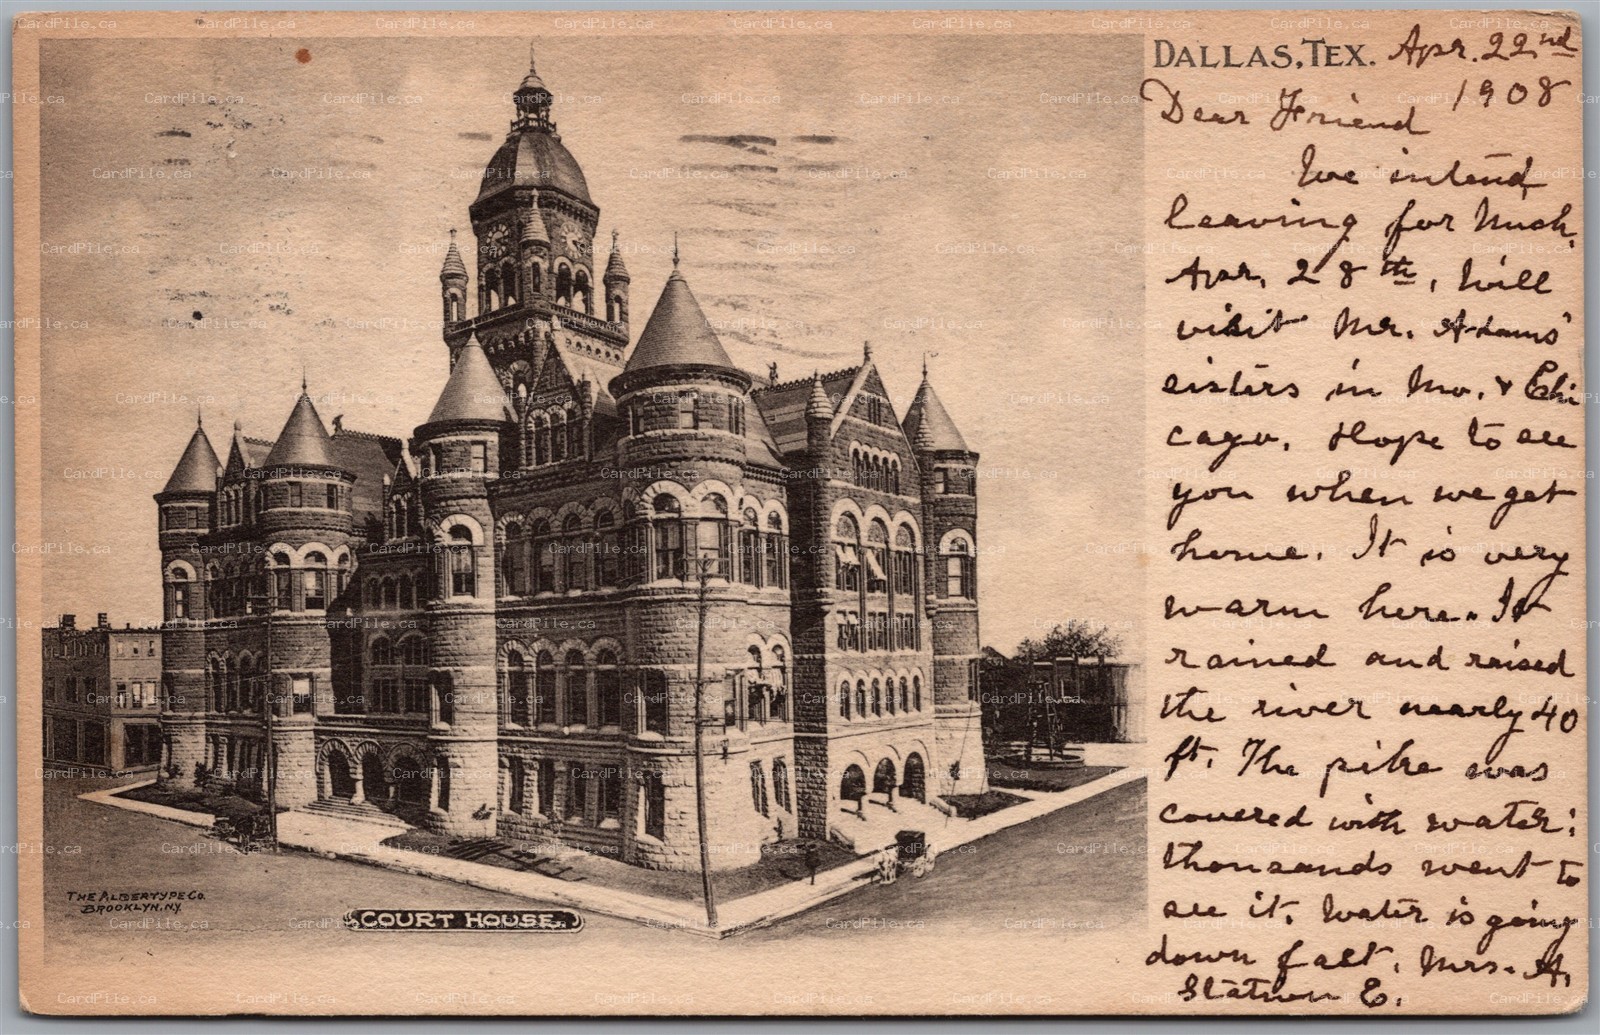 DALLAS, TEX. Apr. 22nd
1908
Dear Friend
We intend
leaving for Mich.
Apr. 28th, Will
visit Mr. Adams'
sisters in Mo. & Chi
cago. Hope to see
you when we get
home. It is very
warm here. It
rained and raised
the river nearly 40
ft. The pike was
covered with water;
thousands went to
see it. Water is going
down fast. Mrs. A.
Station E.
THE ALBERTYPE CO.
BROOKLYN, N.Y.
COURT HOUSE.
CardPile.ca